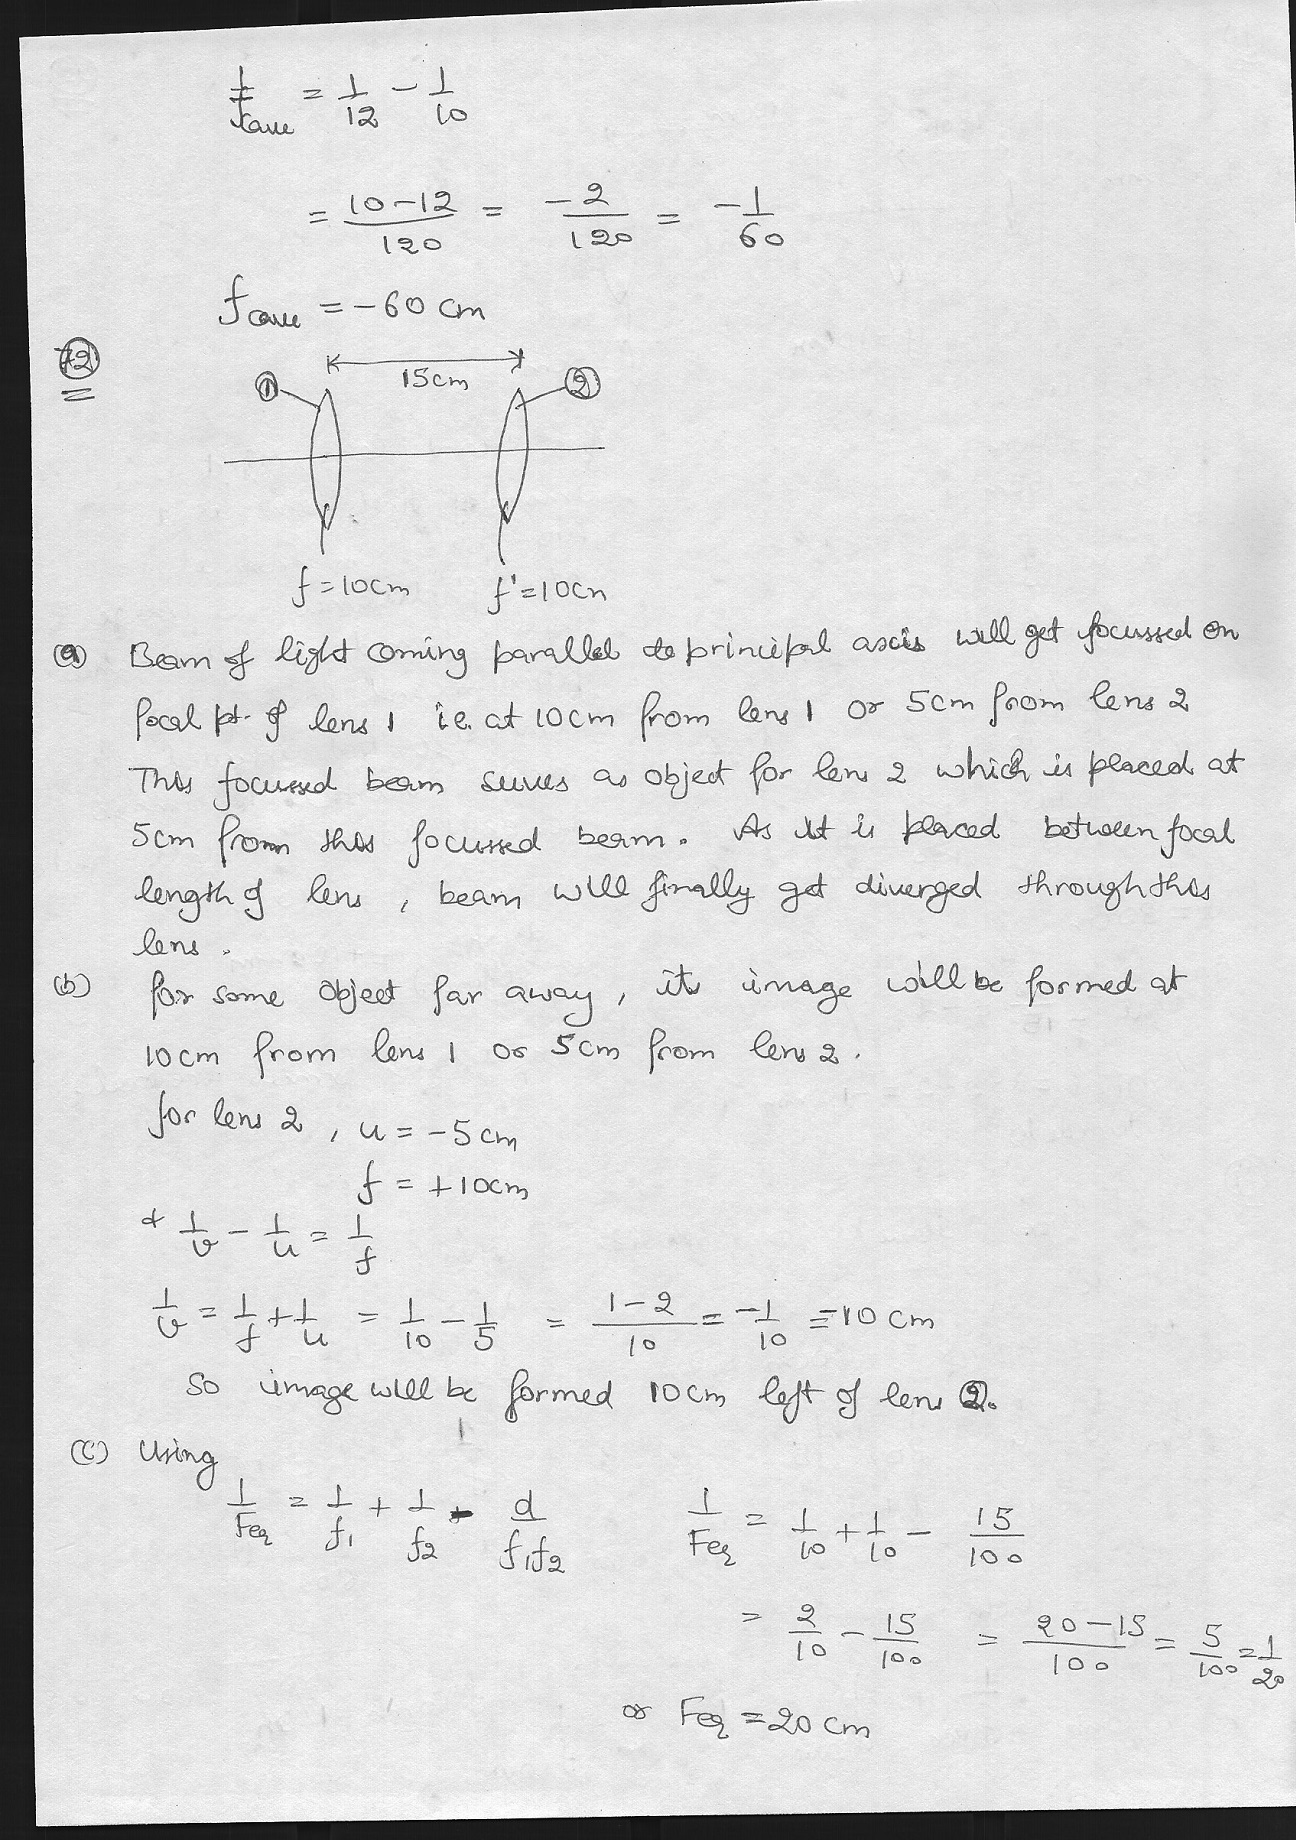 1/fcave = 1/12 - 1/10
= 10-12/120 = -2/120 = -1/60
fcave = -60 cm
72
15cm
1 2
f=10cm f'=10cm
(a) Beam of light coming parallel to principal axis will get focussed on
focal pt. of lens 1 i.e. at 10cm from lens 1 or 5cm from lens 2
This focussed beam serves as object for lens 2 which is placed at
5cm from this focussed beam. As it is placed between focal
length of lens, beam will finally get diverged through this
lens.
(b) for some object far away, its image will be formed at
10cm from lens 1 or 5cm from lens 2.
for lens 2, u = -5cm
f = +10cm
1/v - 1/u = 1/f
1/v = 1/f + 1/u = 1/10 - 1/5 = 1-2/10 = -1/10 = -10 cm
So image will be formed 10cm left of lens 2.
(c) Using
1/Feq = 1/f1 + 1/f2 - d/f1f2 1/Feq = 1/10 + 1/10 - 15/100
= 2/10 - 15/100 = 20-15/100 = 5/100 = 1/20
or Feq = 20 cm